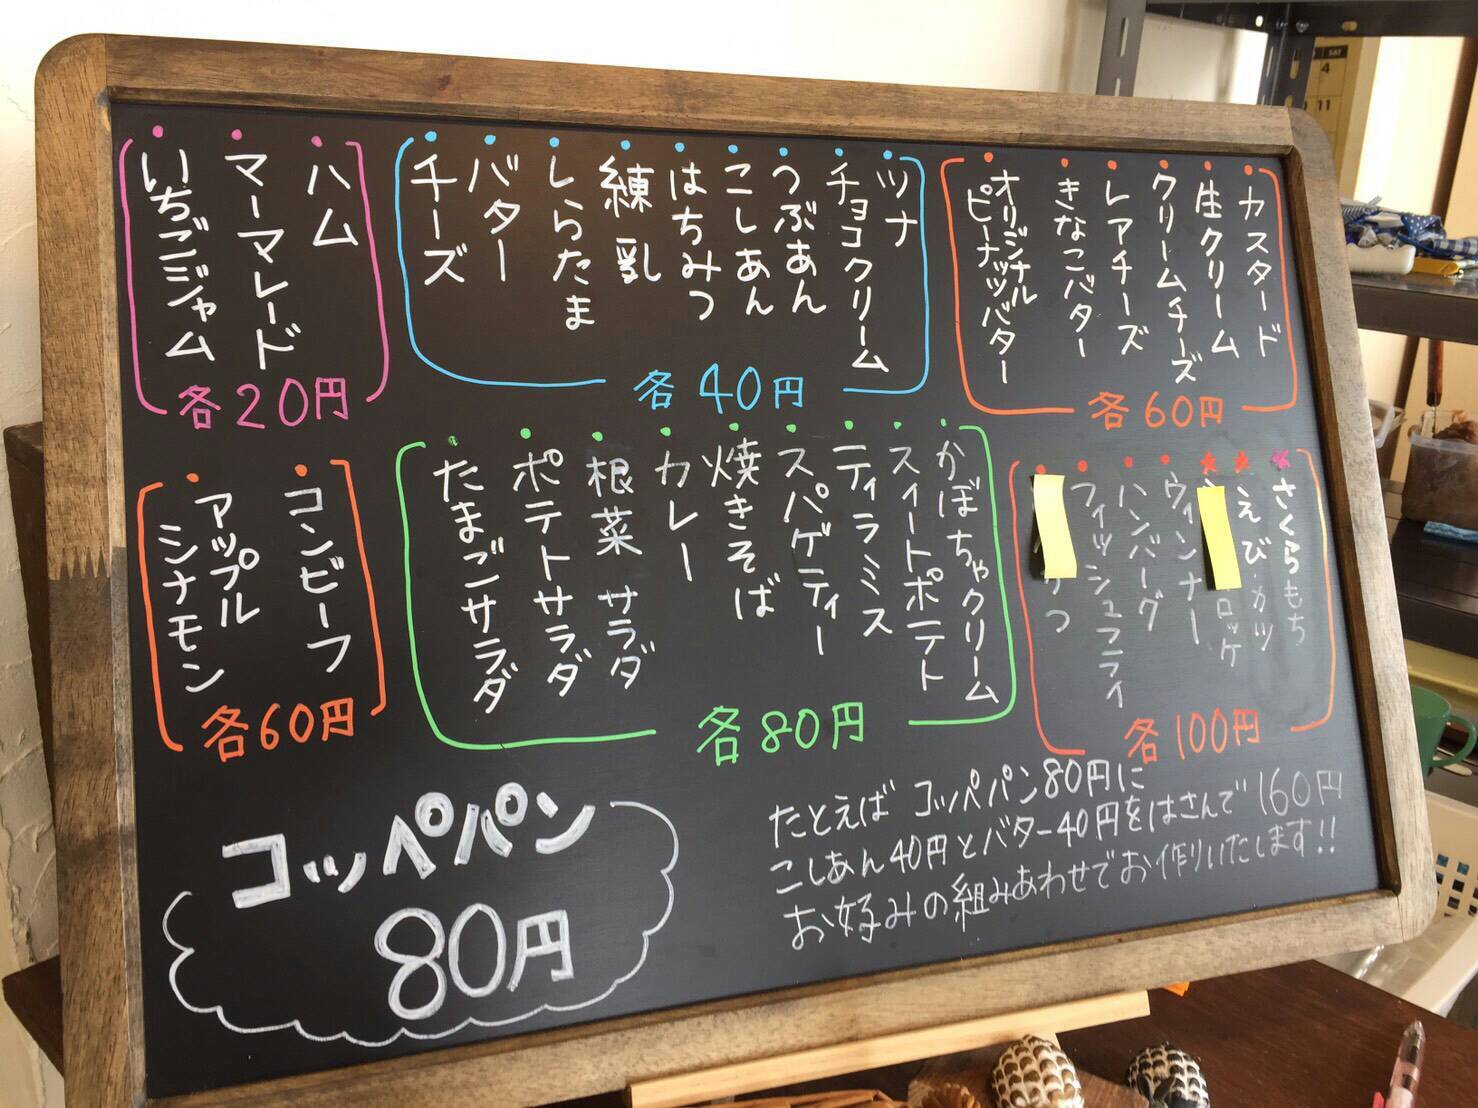 カスタード
生クリーム
クリームチーズ
レアチーズ
きなこバター
オリジナル
ピーナッツバター
各60円
ツナ
チョコクリーム
つぶあん
こしあん
はちみつ
練乳
しらたま
バター
チーズ
各40円
ハム
マーマレード
いちごジャム
各20円
さくらもち
えび・カツ
ロッケ
ウィンナー
ハンバーグ
フィッシュフライ
つ
各100円
かぼちゃクリーム
スイートポテト
ティラミス
スパゲティー
焼きそば
カレー
根菜サラダ
ポテトサラダ
たまごサラダ
各80円
コンビーフ
アップル
シナモン
各60円
コッペパン
80円
たとえば コッペパン80円に
こしあん40円とバター40円をはさんで160円
お好みの組みあわせでお作りいたします!!
SAT
4
11